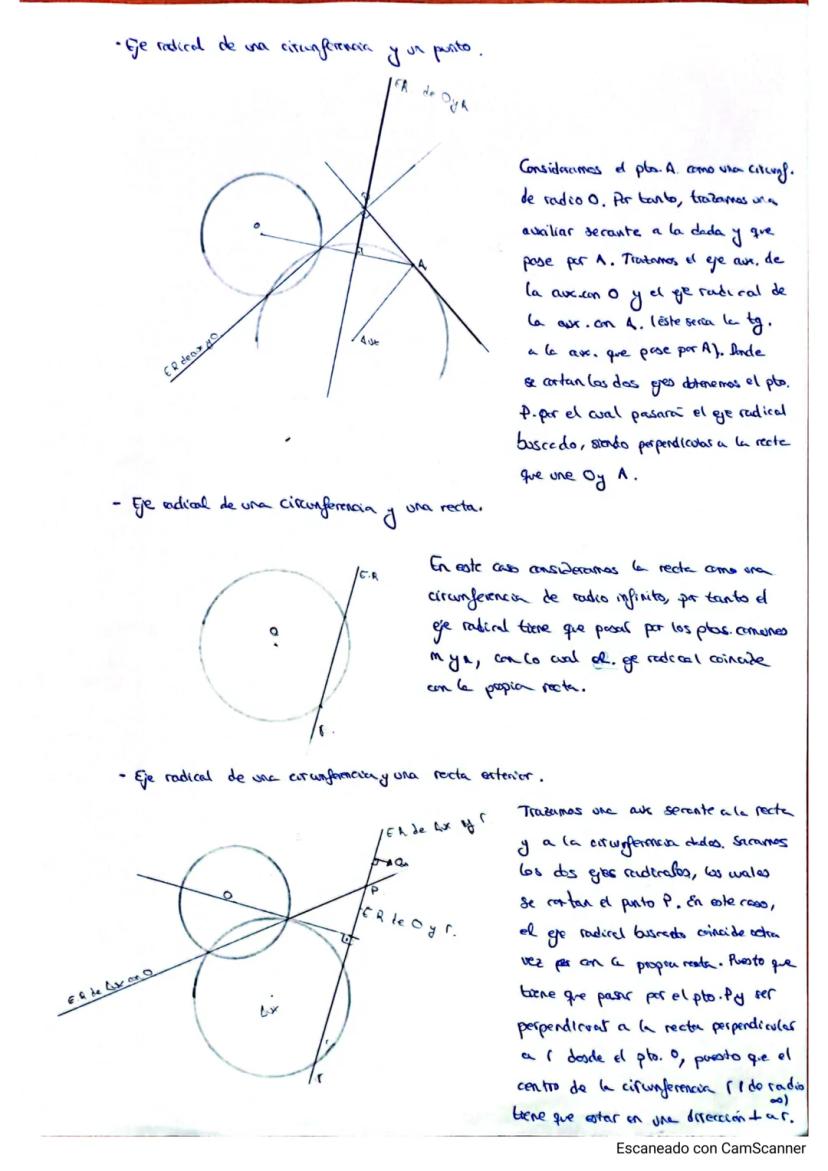 · Eje radical de una circunferencia y un punto.
ER de O y A
Consideramos el pto. A como una circunf.
de radio O. Por tanto, trazamos una
auxiliar secante a la dada y que
pase por A. Tratamos el eje aux. de
la aux. con O y el eje radical de
la aux. con A. (éste sería la tg.
a la aux. que pase por A). Donde
se cortan los dos ejes obtenemos el pto.
P. por el cual pasará el eje radical
buscado, siendo perpendicular a la recta
que une O y A.
O
A
Aux
ER de aux y O
- Eje radical de una circunferencia y una recta.
E.R
O
r.
En este caso consideramos la recta como una
circunferencia de radio infinito, por tanto el
eje radical tiene que pasar por los ptos. comunes
m y n, con lo cual el. eje radical coincide
con la propia recta.
- Eje radical de una circunferencia y una recta exterior.
ER de Aux y r
P
ER de O y r.
O
ER de Aux con O
Aux
r
Trazamos una aux secante a la recta
y a la circunferencia dadas. Sacamos
los dos ejes radicales, los cuales
se cortan el punto P. En este caso,
el eje radical buscado coincide otra
vez con la propia recta. Puesto que
tiene que pasar por el pto. P y ser
perpendicular a la recta perpendicular
a r desde el pto. O, puesto que el
centro de la circunferencia r (de radio
∞)
tiene que estar en una dirección ⊥ a r.
Escaneado con CamScanner